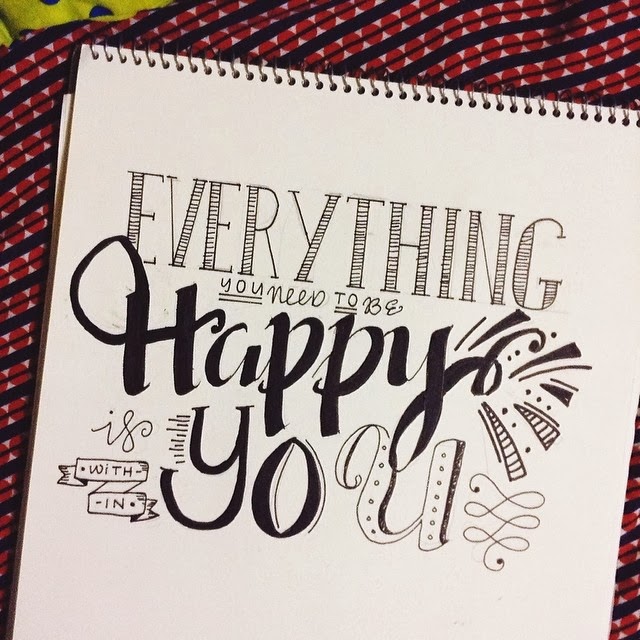 EVERYTHING
YOU NEED TO BE
Happy
is
WITH-
-IN
YOU